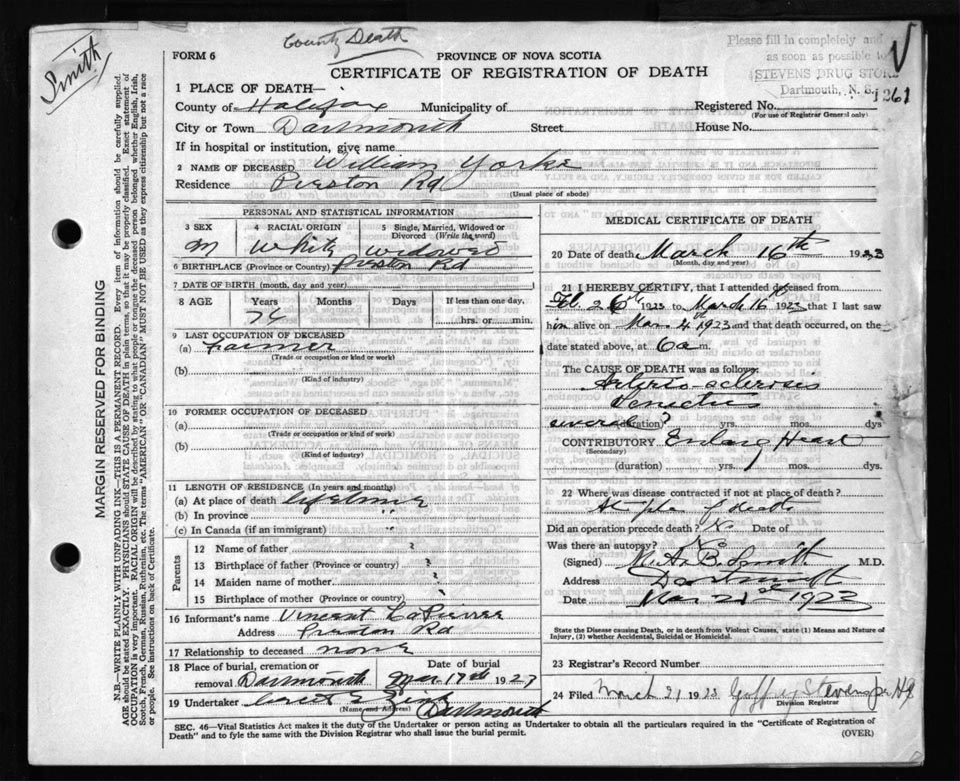 Smith
County Death
FORM 6
PROVINCE OF NOVA SCOTIA
CERTIFICATE OF REGISTRATION OF DEATH
Please fill in completely and
as soon as possible to
STEVENS DRUG STORE
Dartmouth, N. S.
1261
1 PLACE OF DEATH—
County of Halifax Municipality of
Registered No.
(For use of Registrar General only)
City or Town Dartmouth Street House No.
If in hospital or institution, give name
2 NAME OF DECEASED William Yorke
Residence Preston Rd
(Usual place of abode)
PERSONAL AND STATISTICAL INFORMATION
3 SEX
M
4 RACIAL ORIGIN
White
5 Single, Married, Widowed or
Divorced (Write the word)
Widowed
6 BIRTHPLACE (Province or Country) Preston Rd
7 DATE OF BIRTH (month, day and year)
8 AGE Years Months Days If less than one day,
74
hrs. or min.
9 LAST OCCUPATION OF DECEASED
(a) Farmer
(Trade or occupation or kind or work)
(b)
(Kind of industry)
10 FORMER OCCUPATION OF DECEASED
(a)
(Trade or occupation or kind of work)
(b)
(Kind of industry)
11 LENGTH OF RESIDENCE (In years and months)
(a) At place of death lifetime
(b) In province "
(c) In Canada (if an immigrant) "
Parents
12 Name of father ?
13 Birthplace of father (Province or country) ?
14 Maiden name of mother ?
15 Birthplace of mother (Province or country) ?
16 Informant's name Vincent LaPierre
Address Preston Rd
17 Relationship to deceased none
18 Place of burial, cremation or
removal Dartmouth
Date of burial
Mar 17th 1923
19 Undertaker
(Name and Address) Dartmouth
MEDICAL CERTIFICATE OF DEATH
20 Date of death March 16th 1923
(Month, day and year)
21 I HEREBY CERTIFY, that I attended deceased from
Feb. 26th 1923 to March 16 1923 that I last saw
him alive on Mar 4th 1923 and that death occurred, on the
date stated above, at 6 a m.
The CAUSE OF DEATH was as follows:
sclerosis
several (duration)? yrs. mos. dys
CONTRIBUTORY Enlarg Heart
(Secondary)
(duration) yrs. mos. dys.
22 Where was disease contracted if not at place of death?
At place of death
Did an operation precede death? No Date of
Was there an autopsy? No
(Signed) M. A. B. Smith M.D.
Address Dartmouth
Date Mar 21st 1923
State the Disease causing Death, or in death from Violent Causes, state (1) Means and Nature of
Injury, (2) whether Accidental, Suicidal or Homicidal.
23 Registrar's Record Number
24 Filed March 21 1923 Stevens
Division Registrar
SEC. 46—Vital Statistics Act makes it the duty of the Undertaker or person acting as Undertaker to obtain all the particulars required in the "Certificate of Registration of
Death" and to fyle the same with the Division Registrar who shall issue the burial permit.
(OVER)
MARGIN RESERVED FOR BINDING
N.B.—WRITE PLAINLY WITH UNFADING INK—THIS IS A PERMANENT RECORD. Every item of information should be carefully supplied.
AGE should be stated EXACTLY. PHYSICIANS should STATE CAUSE OF DEATH in plain terms, so that it may be properly classified. Exact statement of
OCCUPATION is very important. RACIAL ORIGIN will be described by stating to what people or tongue the deceased person belonged whether English, Irish,
Scotch, French, German, Russian, Ruthenian, etc. The terms "AMERICAN" OR "CANADIAN" MUST NOT BE USED as they express citizenship but not a race
or people. See instructions on back of Certificate.